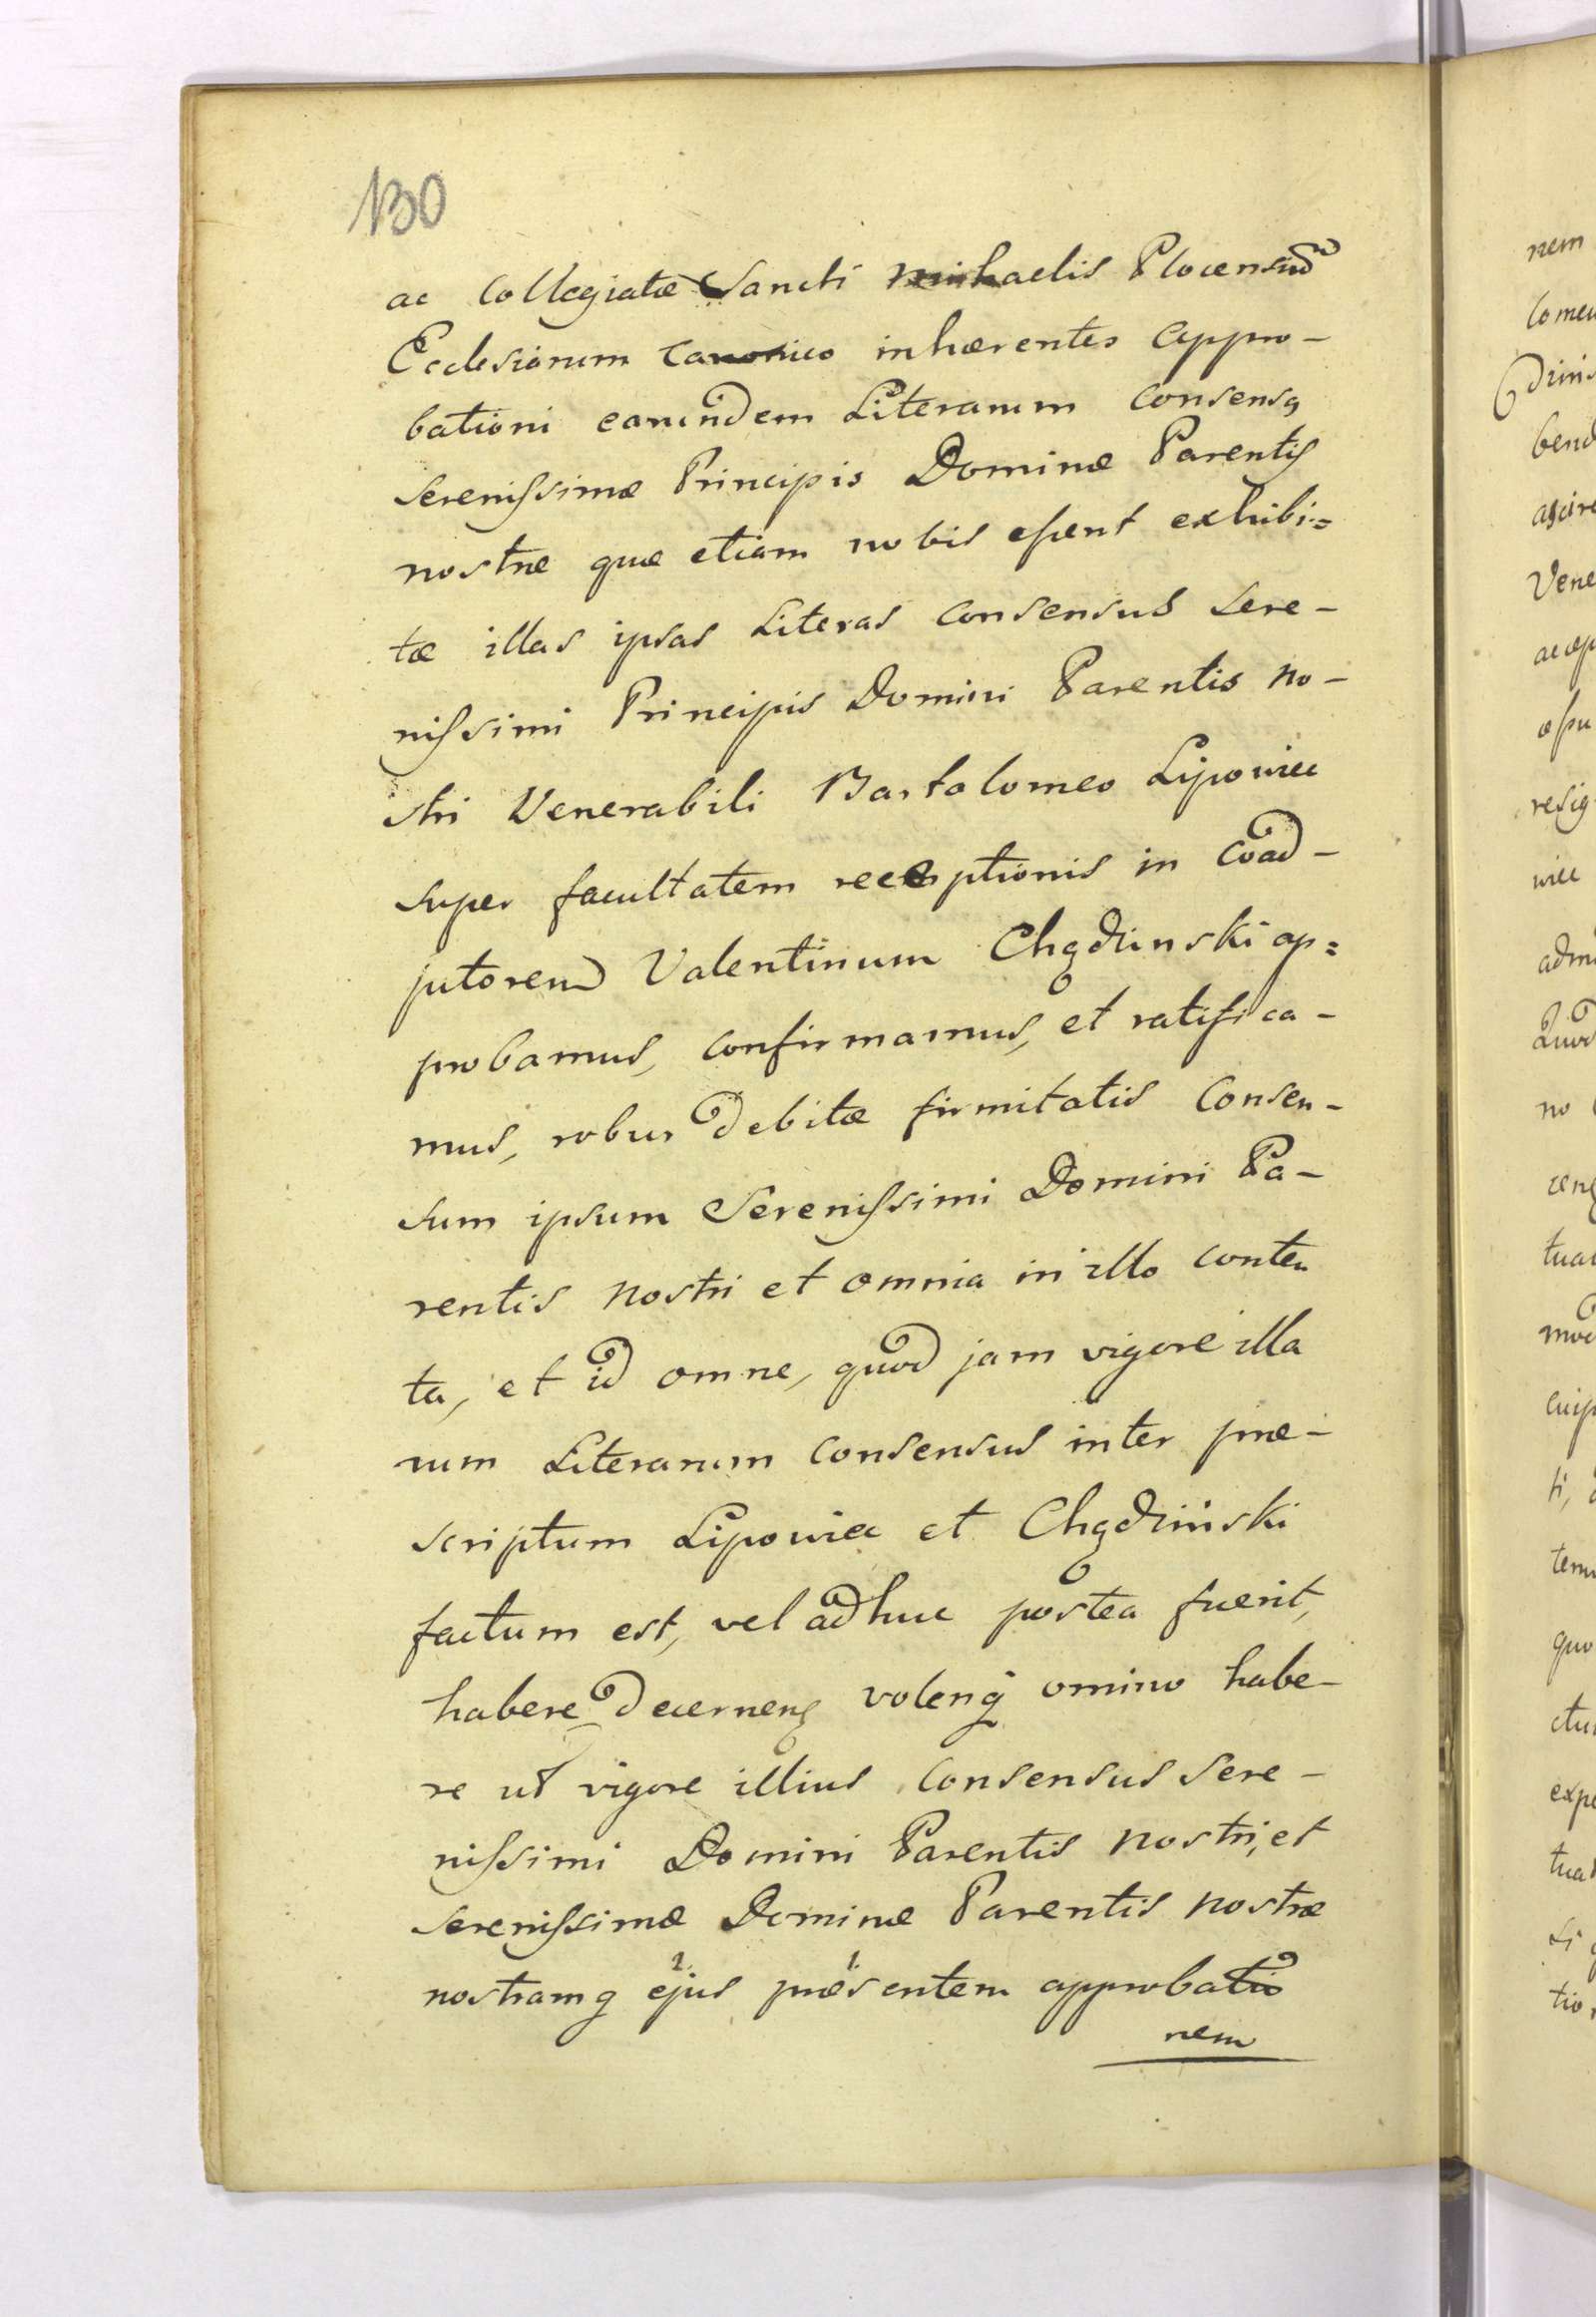 130
ac Collegiatæ Sancti Michaelis Plocensiu͠
Ecclesiarum Canonico inhærentes appro-
bationi earundem Literarum Consensꝰ
Serenissimæ Principis Dominæ Parentis
nostræ quæ etiam nobis essent exhibi=
tæ illas ipsas Literas Consensus Sere-
nissimi Principis Domini Parentis no-
stri Venerabili Bartolomeo Lipowiec
super facultatem receptionis in Coad-
jutorem Valentinum Chądzinski ap=
probamus, confirmamus, et ratifica-
mus, robur debitæ firmitatis Consen-
sum ipsum Serenissimi Domini Pa-
rentis nostri et omnia in illo conten
ta, et id omne, quod jam vigore illa
rum Literarum Consensus inter præ-
scriptum Lipowiec et Chądzinski
factum est, vel adhuc postea fuerit,
habere decernenꝭ volenꝗ omino habe-
re ut vigore illius Consensus Sere-
nissimi Domini Parentis nostri, et
Serenissimæ Dominæ Parentis nostræ
nostramꝗ ejus 2. præsentem 1. approbatio
nem
nem